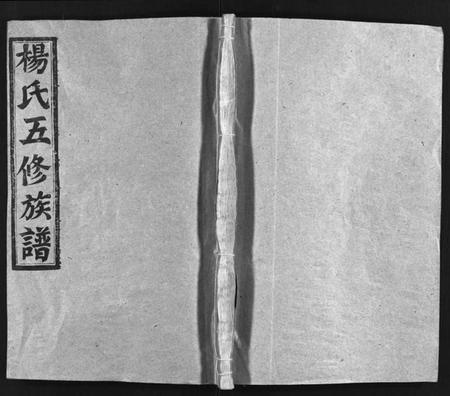 楊氏五修族譜